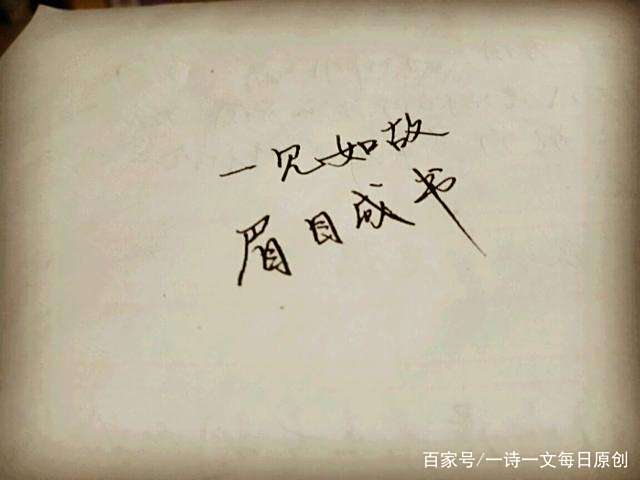 一见如故
眉目成书
百家号/一诗一文每日原创